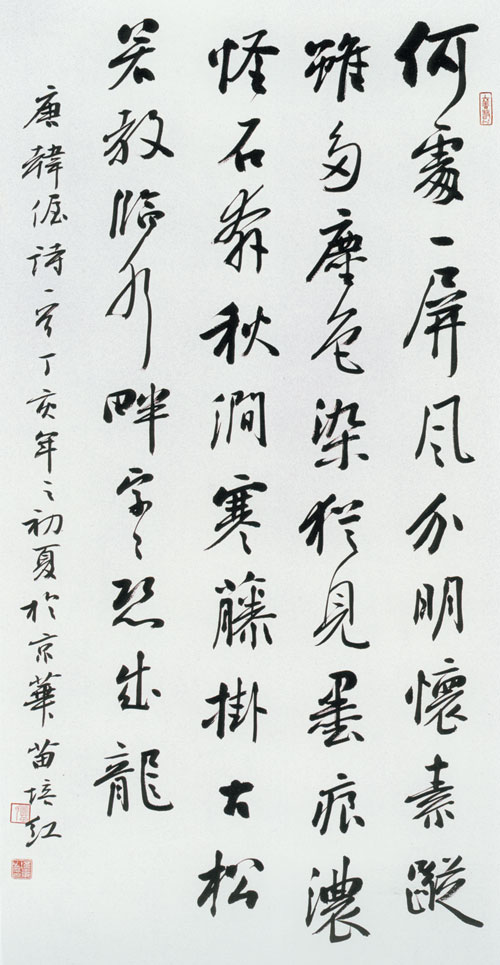 何處一屏风分明懷素蹤
雖多塵色染猶見墨痕濃
怪石奔秋澗寒藤掛古松
若教臨水畔字〻恐成龍
唐韓偓詩一首丁亥年之初夏於京華苗培红